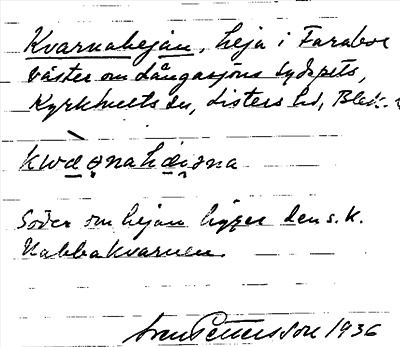 Kvarnahejan, heja i Farabol
väster om Långasjöns sydspets,
Kyrkhults sn, Listers hd, Blek.
kwàǝnahǡiǝna
Söder om hejan ligger den s.k.
Nabbakvarnen.
Sven Pettersson 1936